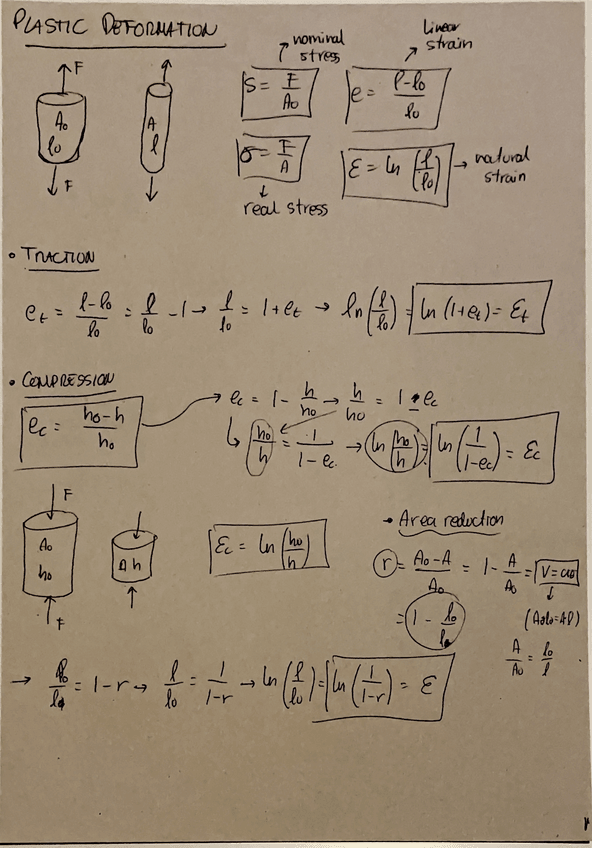 PLASTIC DEFORMATION
nominal stress
linear strain
F
A₀
l₀
F
A
l
S = F/A₀
e = (l-l₀)/l₀
σ = F/A
real stress
ε = ln (l/l₀)
natural strain
• TRACTION
e_t = (l-l₀)/l₀ = l/l₀ - 1 → l/l₀ = 1 + e_t → ln(l/l₀) = ln (1+e_t) = ε_t
• COMPRESSION
e_c = (h₀-h)/h₀
e_c = 1 - h/h₀ → h/h₀ = 1 - e_c
h₀/h = 1/(1-e_c) → ln(h₀/h) = ln(1/(1-e_c)) = ε_c
F
A₀
h₀
F
A h
ε_c = ln(h₀/h)
→ Area reduction
r = (A₀-A)/A₀ = 1 - A/A₀ = V = cte
(A₀l₀ = Al)
A/A₀ = l₀/l
= 1 - l₀/l
→ l₀/l = 1-r → l/l₀ = 1/(1-r) → ln(l/l₀) = ln(1/(1-r)) = ε